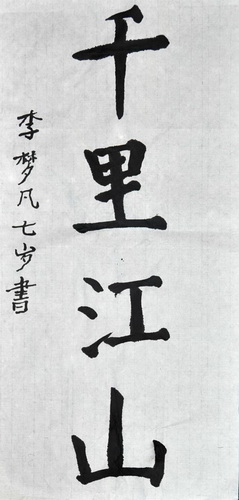 千里江山
李梦凡七岁書